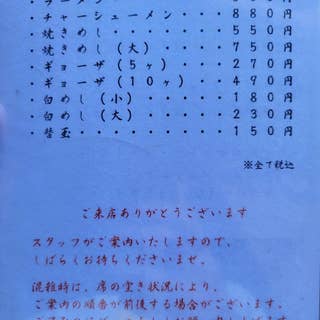 ・チャーシューメン・・・・880円
・焼きめし・・・・・・・・550円
・焼きめし（大）・・・・・750円
・ギョーザ（5ヶ）・・・・270円
・ギョーザ（10ヶ）・・・490円
・白めし（小）・・・・・・180円
・白めし（大）・・・・・・230円
・替玉・・・・・・・・・・150円
※全て税込
ご来店ありがとうございます
スタッフがご案内いたしますので、
しばらくお待ちくださいませ。
混雑時は、席の空き状況により、
ご案内の順番が前後する場合がございます。